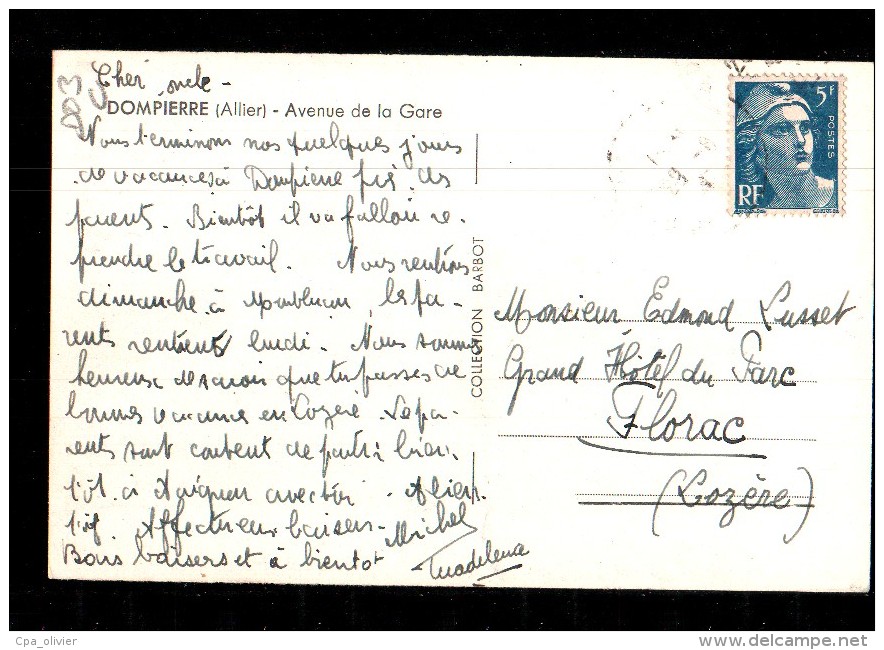 Cher oncle -
DOMPIERRE (Allier) - Avenue de la Gare
Nous terminons nos quelques jours
de vacances à Dompierre près des
parents. Bientôt il va falloir re-
prendre le travail. Nous rentrons
dimanche à les pa-
rents rentrent lundi. Nous sommes
heureux de savoir que tu passes de
bonnes vacances en Lozère. Les pa-
rents sont content de partir bien
tôt à avec toi.
Affectueux baisers -
Michel
Bons baisers et à bientot
Madeleine
COLLECTION BARBOT
5F
POSTES
RF
Monsieur Edmond Lusset
Grand Hôtel du Parc
Florac
(Lozère)
Cpa_olivier
delcampe.net